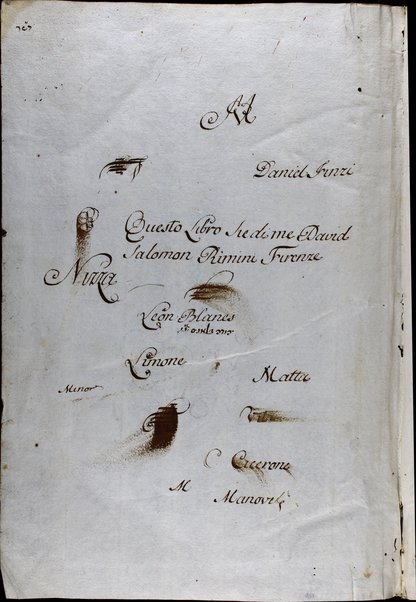 M
Daniel Finzi
Questo Libro Sie di me David
Salomon Rimini Firenze
Nizza
Leon Blanes
Limone
Matta
Minor
C Cicerone
M